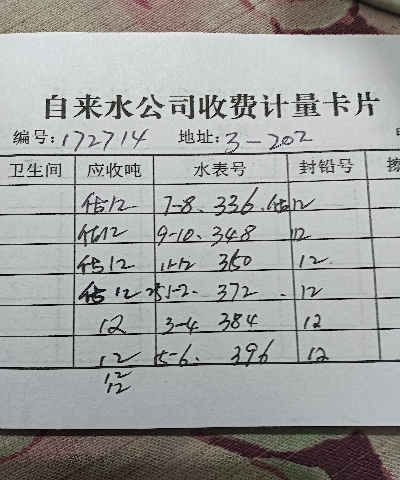 自来水公司收费计量卡片
编号:172714 地址:3-202
卫生间 应收吨 水表号 封铅号
估12 7-8. 336. 估12
估12 9-10. 348 12
估12 11-12 360 12.
估12 251-2. 372. 12
12 3-4 384 12
12 5-6. 396 12
12
12